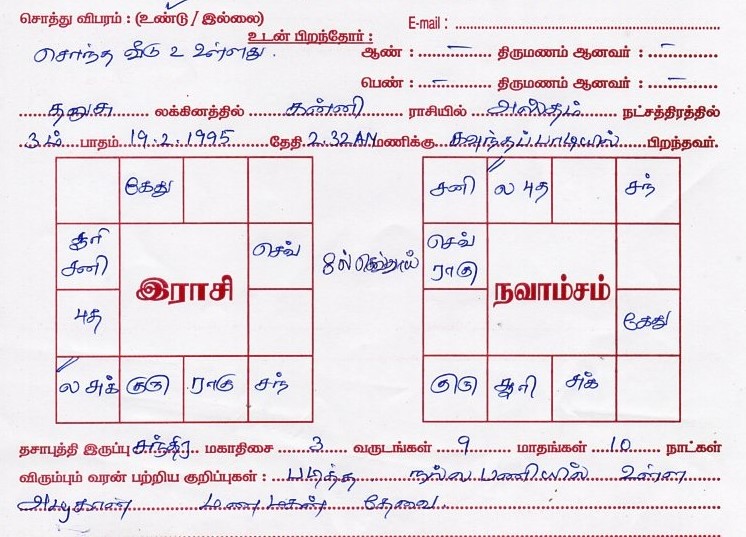 சொத்து விபரம் : (உண்டு / இல்லை)
E-mail :
உடன் பிறந்தோர் :
சொந்த வீடு உ உள்ளது.
ஆண் : — திருமணம் ஆனவர் : —
பெண் : — திருமணம் ஆனவர் : —
தனுசு லக்கினத்தில் கன்னி ராசியில் அஸ்தம் நட்சத்திரத்தில்
3ம் பாதம் 19.2.1995 தேதி 2.32 AM மணிக்கு கவுந்தப்பாடியில் பிறந்தவர்.
கேது
சூரி சனி
செவ்
இராசி
4த
ல சுக் குரு ராகு சந்
8ல் செவ்வாய்
சனி ல 4த சந்
செவ் ராகு
நவாம்சம்
கேது
குரு சூரி சுக்
தசாபுத்தி இருப்பு சந்திர மகாதிசை 3 வருடங்கள் 9 மாதங்கள் 10 நாட்கள்
விரும்பும் வரன் பற்றிய குறிப்புகள் : படித்த நல்ல பணியில் உள்ள
அழகான மணமகன் தேவை.